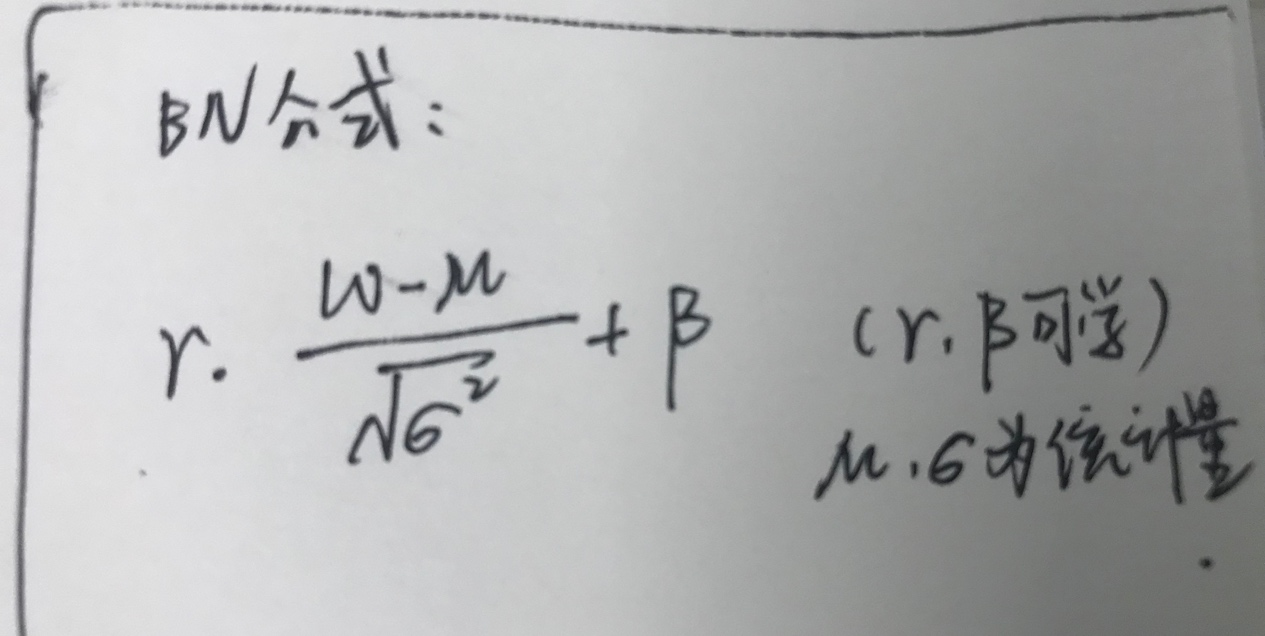 BN公式：
γ. \frac{w-μ}{\sqrt{σ^2}} + β （γ, β可学）
μ.σ为统计量.